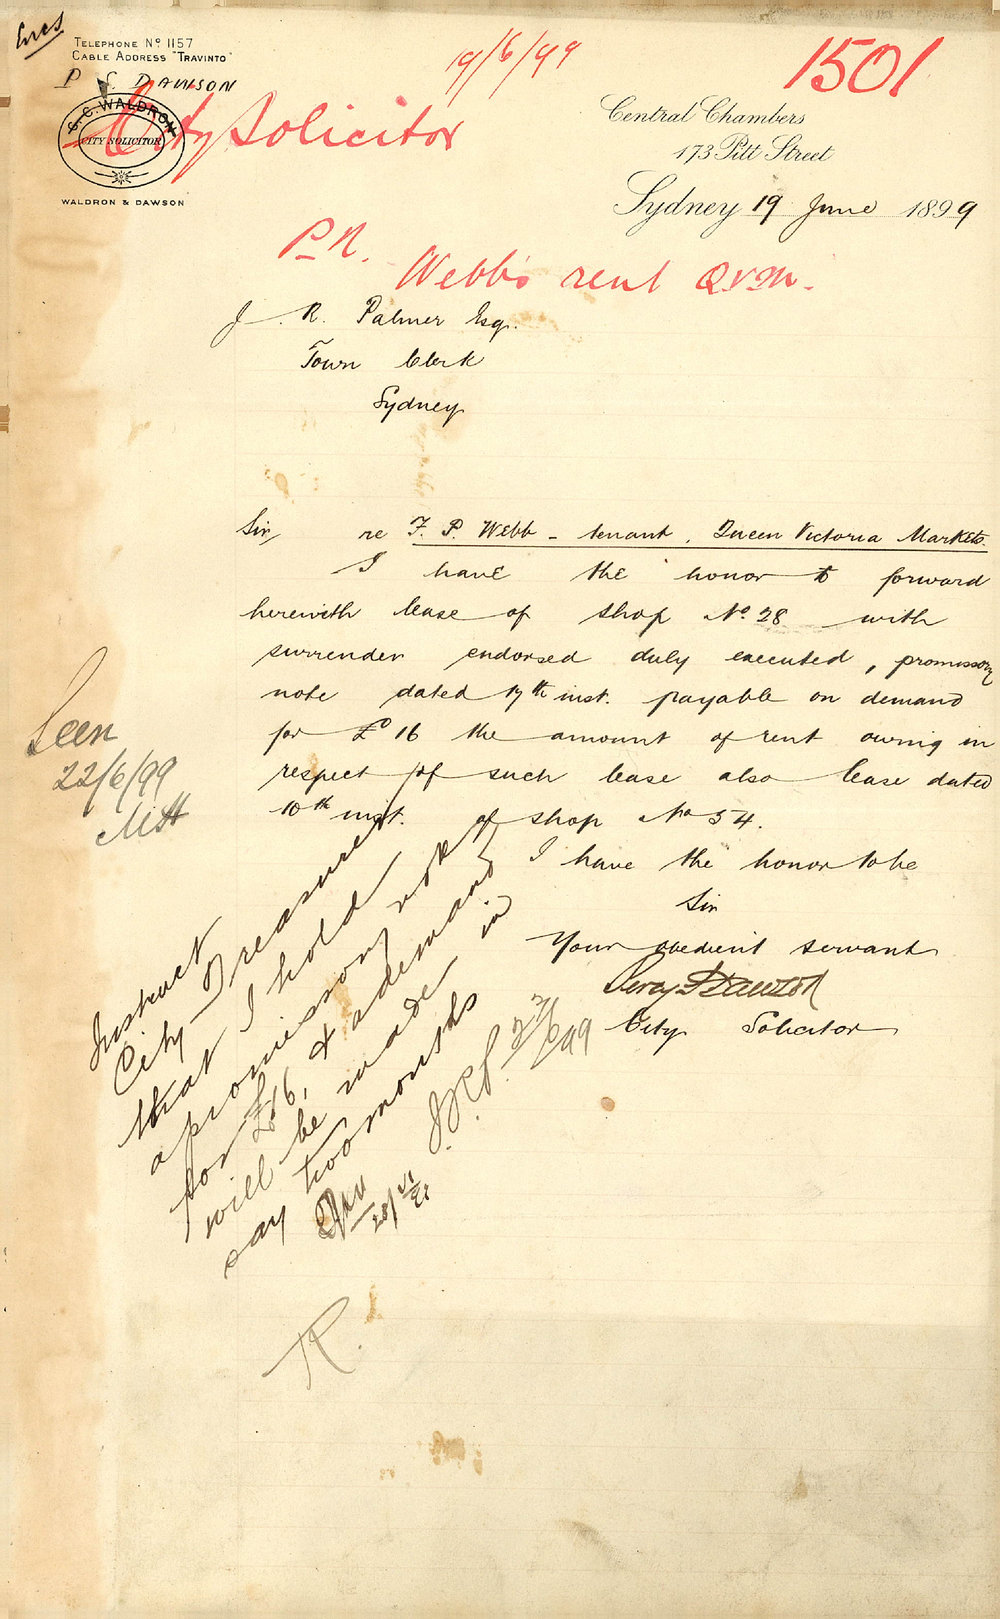 Encs
TELEPHONE Nº 1157
CABLE ADDRESS "TRAVINTO"
P S DAWSON
G. C. WALDRON
CITY SOLICITOR
WALDRON & DAWSON
19/6/99
1501
City Solicitor
Central Chambers
173 Pitt Street
Sydney 19 June 1899
P.R.
Webb's rent Q.V.M.
J. R. Palmer Esq.
Town Clerk
Sydney
Sir, re F. P. Webb - tenant, Queen Victoria Markets.
I have the honor to forward
herewith lease of shop No. 28 with
surrender endorsed duly executed, promissory
note dated 17th inst. payable on demand
for £16 the amount of rent owing in
respect of such lease also lease dated
10th inst. of shop No 54.
I have the honor to be
Sir
Your obedient servant
Percy S Dawson
City Solicitor
Seen
22/6/99
Instruct
City Treasurer
that I hold
a promissory note
for £16, & a demand
will be made in
say two months
J.R.P. 22/6/99
R.